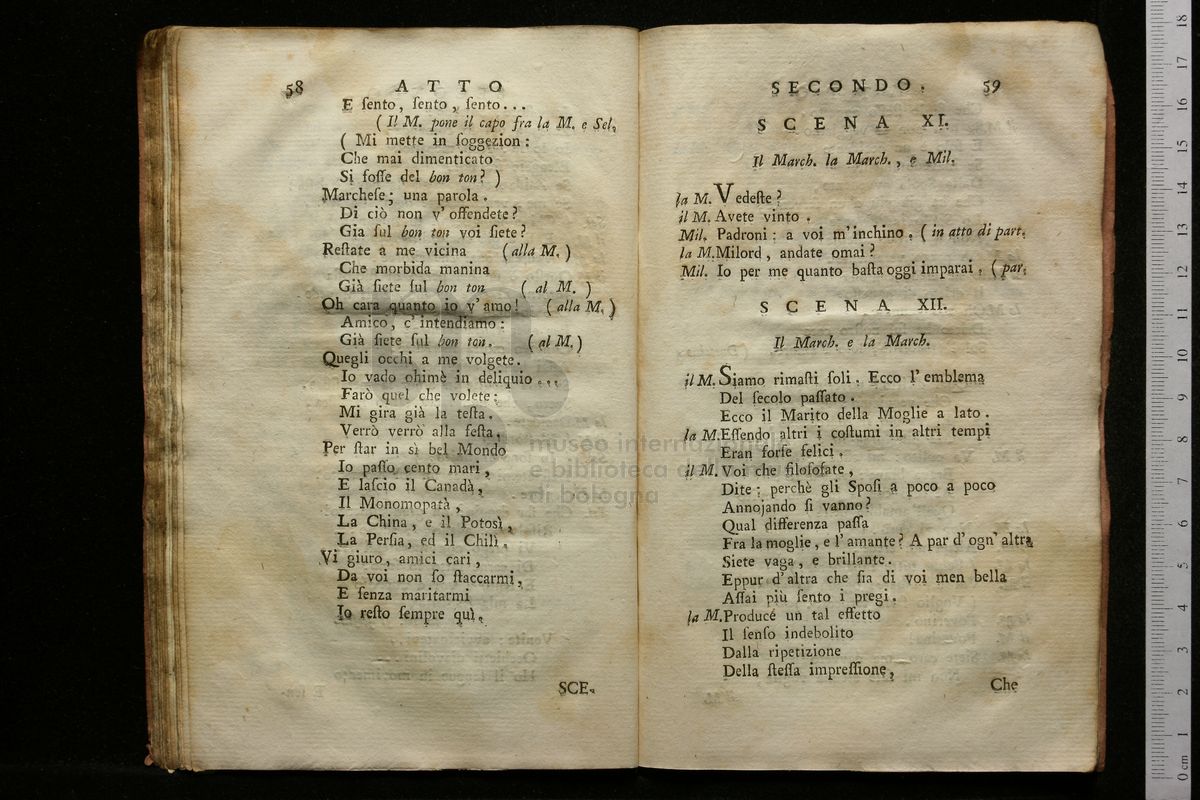 58 ATTO
E ſento, ſento, ſento...
( Il M. pone il capo fra la M. e Sel.
( Mi mette in ſoggezion :
Che mai dimenticato
Si foſſe del bon ton? )
Marcheſe; una parola.
Di ciò non v' offendete?
Gia ſul bon ton voi ſiete?
Reſtate a me vicina (alla M.)
Che morbida manina
Già ſiete ſul bon ton ( al M. )
Oh cara quanto io v' amo! (alla M.)
Amico, c' intendiamo:
Già ſiete ſul bon ton. (al M.)
Quegli occhi a me volgete.
Io vado ohimè in deliquio...
Farò quel che volete:
Mi gira già la teſta.
Verrò verrò alla feſta.
Per ſtar in sì bel Mondo
Io paſſo cento mari,
E laſcio il Canadà,
Il Monomopatà,
La China, e il Potosì,
La Perſia, ed il Chilì.
Vi giuro, amici cari,
Da voi non ſo ſtaccarmi,
E ſenza maritarmi
Io reſto ſempre quì.
SCE-
SECONDO. 59
SCENA XI.
Il March. la March., e Mil.
la M. Vedeſte?
il M. Avete vinto.
Mil. Padroni: a voi m'inchino. (in atto di part.
la M. Milord, andate omai?
Mil. Io per me quanto baſta oggi imparai. (par.
SCENA XII.
Il March. e la March.
il M. Siamo rimaſti ſoli. Ecco l' emblema
Del ſecolo paſſato.
Ecco il Marito della Moglie a lato.
la M. Eſſendo altri i coſtumi in altri tempi
Eran forſe felici.
il M. Voi che filoſofate,
Dite: perchè gli Spoſi a poco a poco
Annojando ſi vanno?
Qual differenza paſſa
Fra la moglie, e l' amante? A par d' ogn' altra
Siete vaga, e brillante.
Eppur d' altra che ſia di voi men bella
Aſſai più ſento i pregi.
la M. Producé un tal effetto
Il ſenſo indebolito
Dalla ripetizione
Della ſteſſa impreſſione,
Che
museo internazionale
e biblioteca della musica
di bologna
0 cm 1 2 3 4 5 6 7 8 9 10 11 12 13 14 15 16 17 18